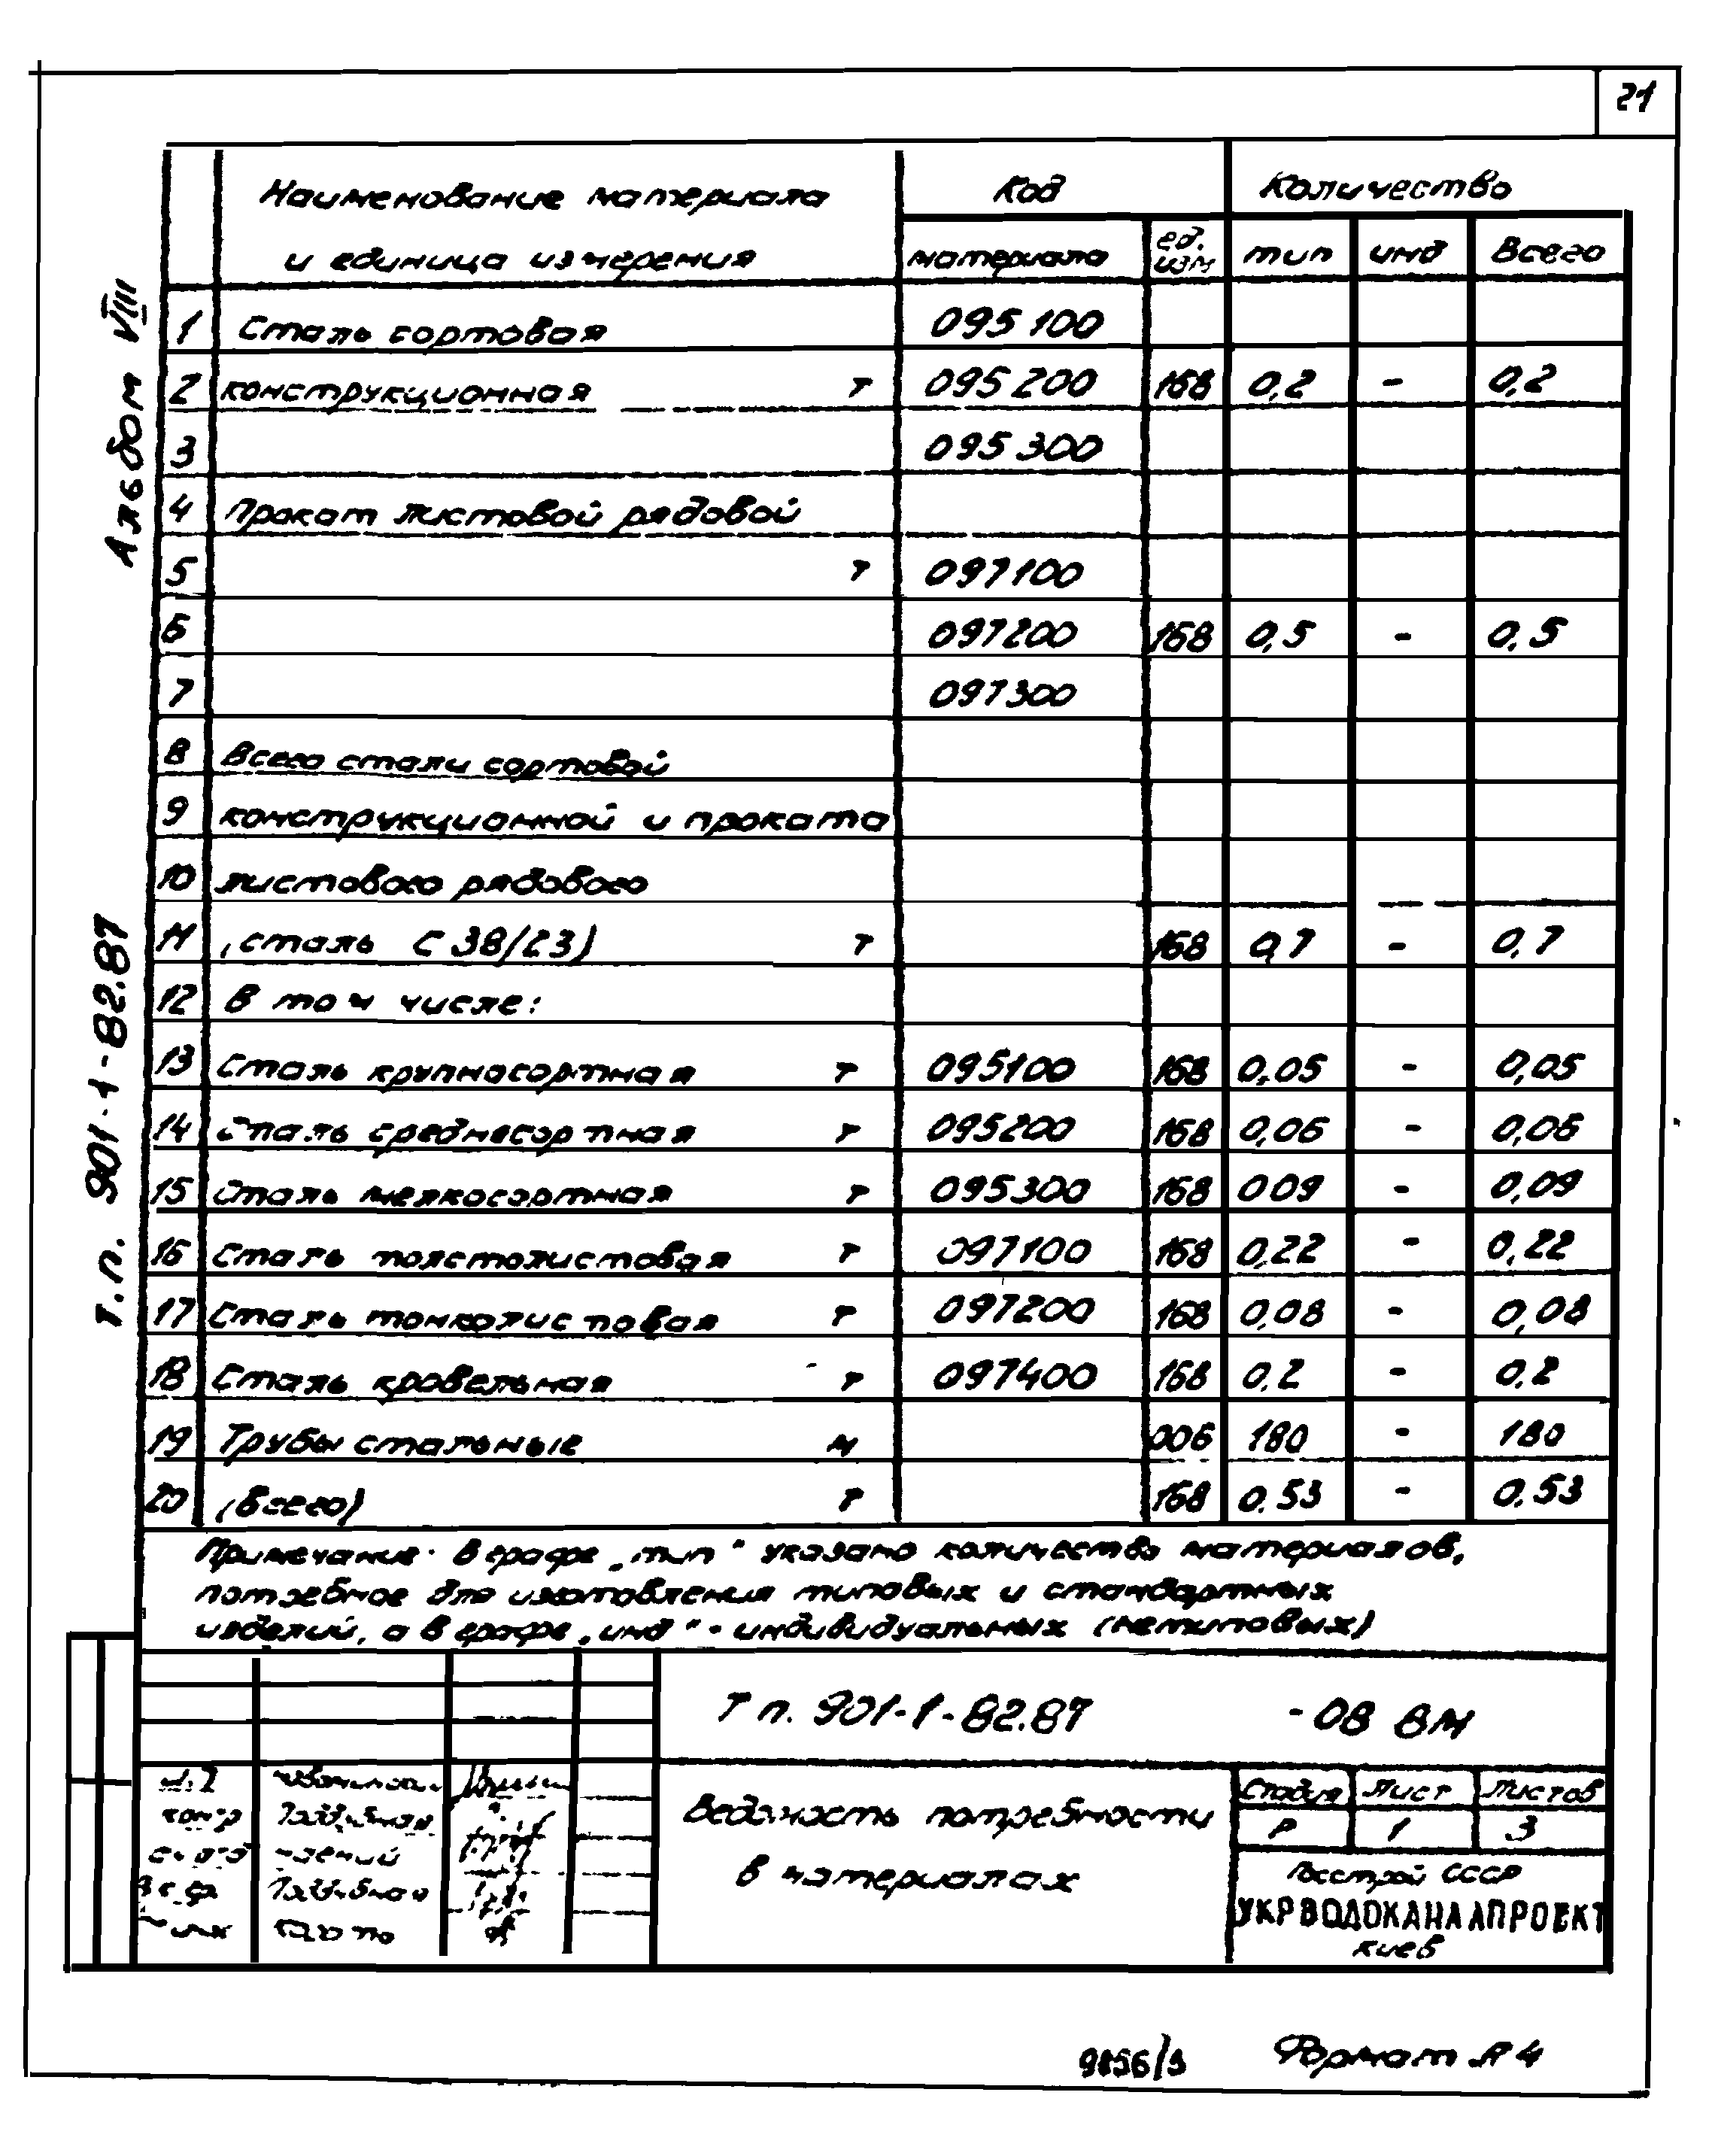 21
Альбом VIII
т.п. 901-1-82.87
Наименование материала и единица измерения
Код
Количество
материала ед. изм тип инд Всего
1 Сталь сортовая 095 100
2 конструкционная т 095 200 168 0,2 - 0,2
3 095 300
4 Прокат листовой рядовой
5 т 097100
6 097200 168 0,5 - 0,5
7 097300
8 Всего стали сортовой
9 конструкционной и проката
10 листового рядового
11 (сталь С 38/23) т 168 0,7 - 0,7
12 В том числе:
13 Сталь крупносортная т 095100 168 0,05 - 0,05
14 Сталь среднесортная т 095200 168 0,06 - 0,06
15 Сталь мелкосортная т 095300 168 0 09 - 0,09
16 Сталь толстолистовая т 097100 168 0,22 - 0,22
17 Сталь тонколистовая т 097200 168 0,08 - 0,08
18 Сталь кровельная т 097400 168 0,2 - 0,2
19 Трубы стальные м 006 180 - 180
20 (всего) т 168 0.53 - 0.53
Примечание. В графе „тип" указано количество материалов,
потребное для изготовления типовых и стандартных
изделий, а в графе „инд" - индивидуальных (нетиповых)
Т п. 901-1-82.87 -08 ВМ
Ведомость потребности
в материалах
Стадия Лист Листов
Р 1 3
Госстрой СССР
УКРВОДОКАНАЛПРОЕКТ
Киев
9856/3 Формат А4